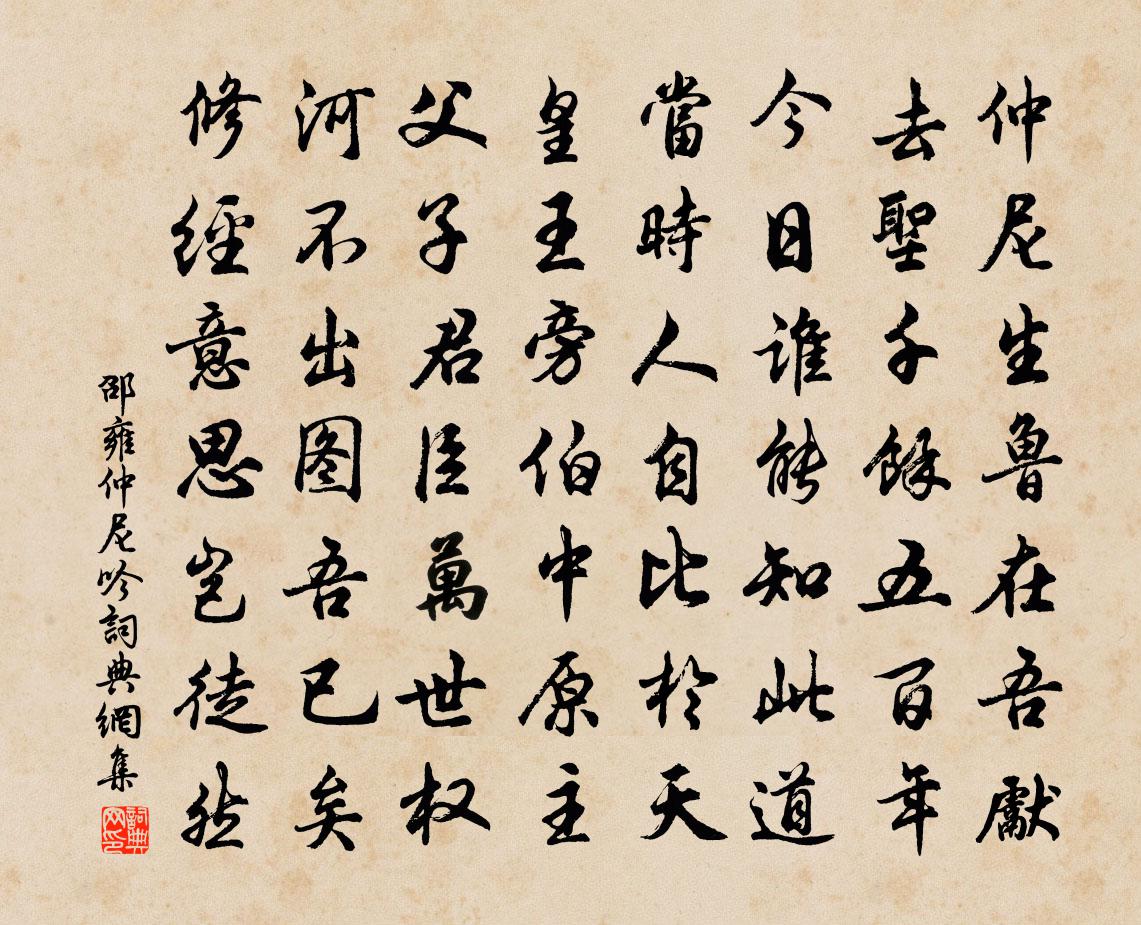 仲尼生魯在吾獻
去聖千餘五百年
今日誰能知此道
當時人自比於天
皇王旁伯中原主
父子君臣萬世权
河不出图吾已矣
修經意思岂徒然
邵雍仲尼吟詞典網集
詞典
网印